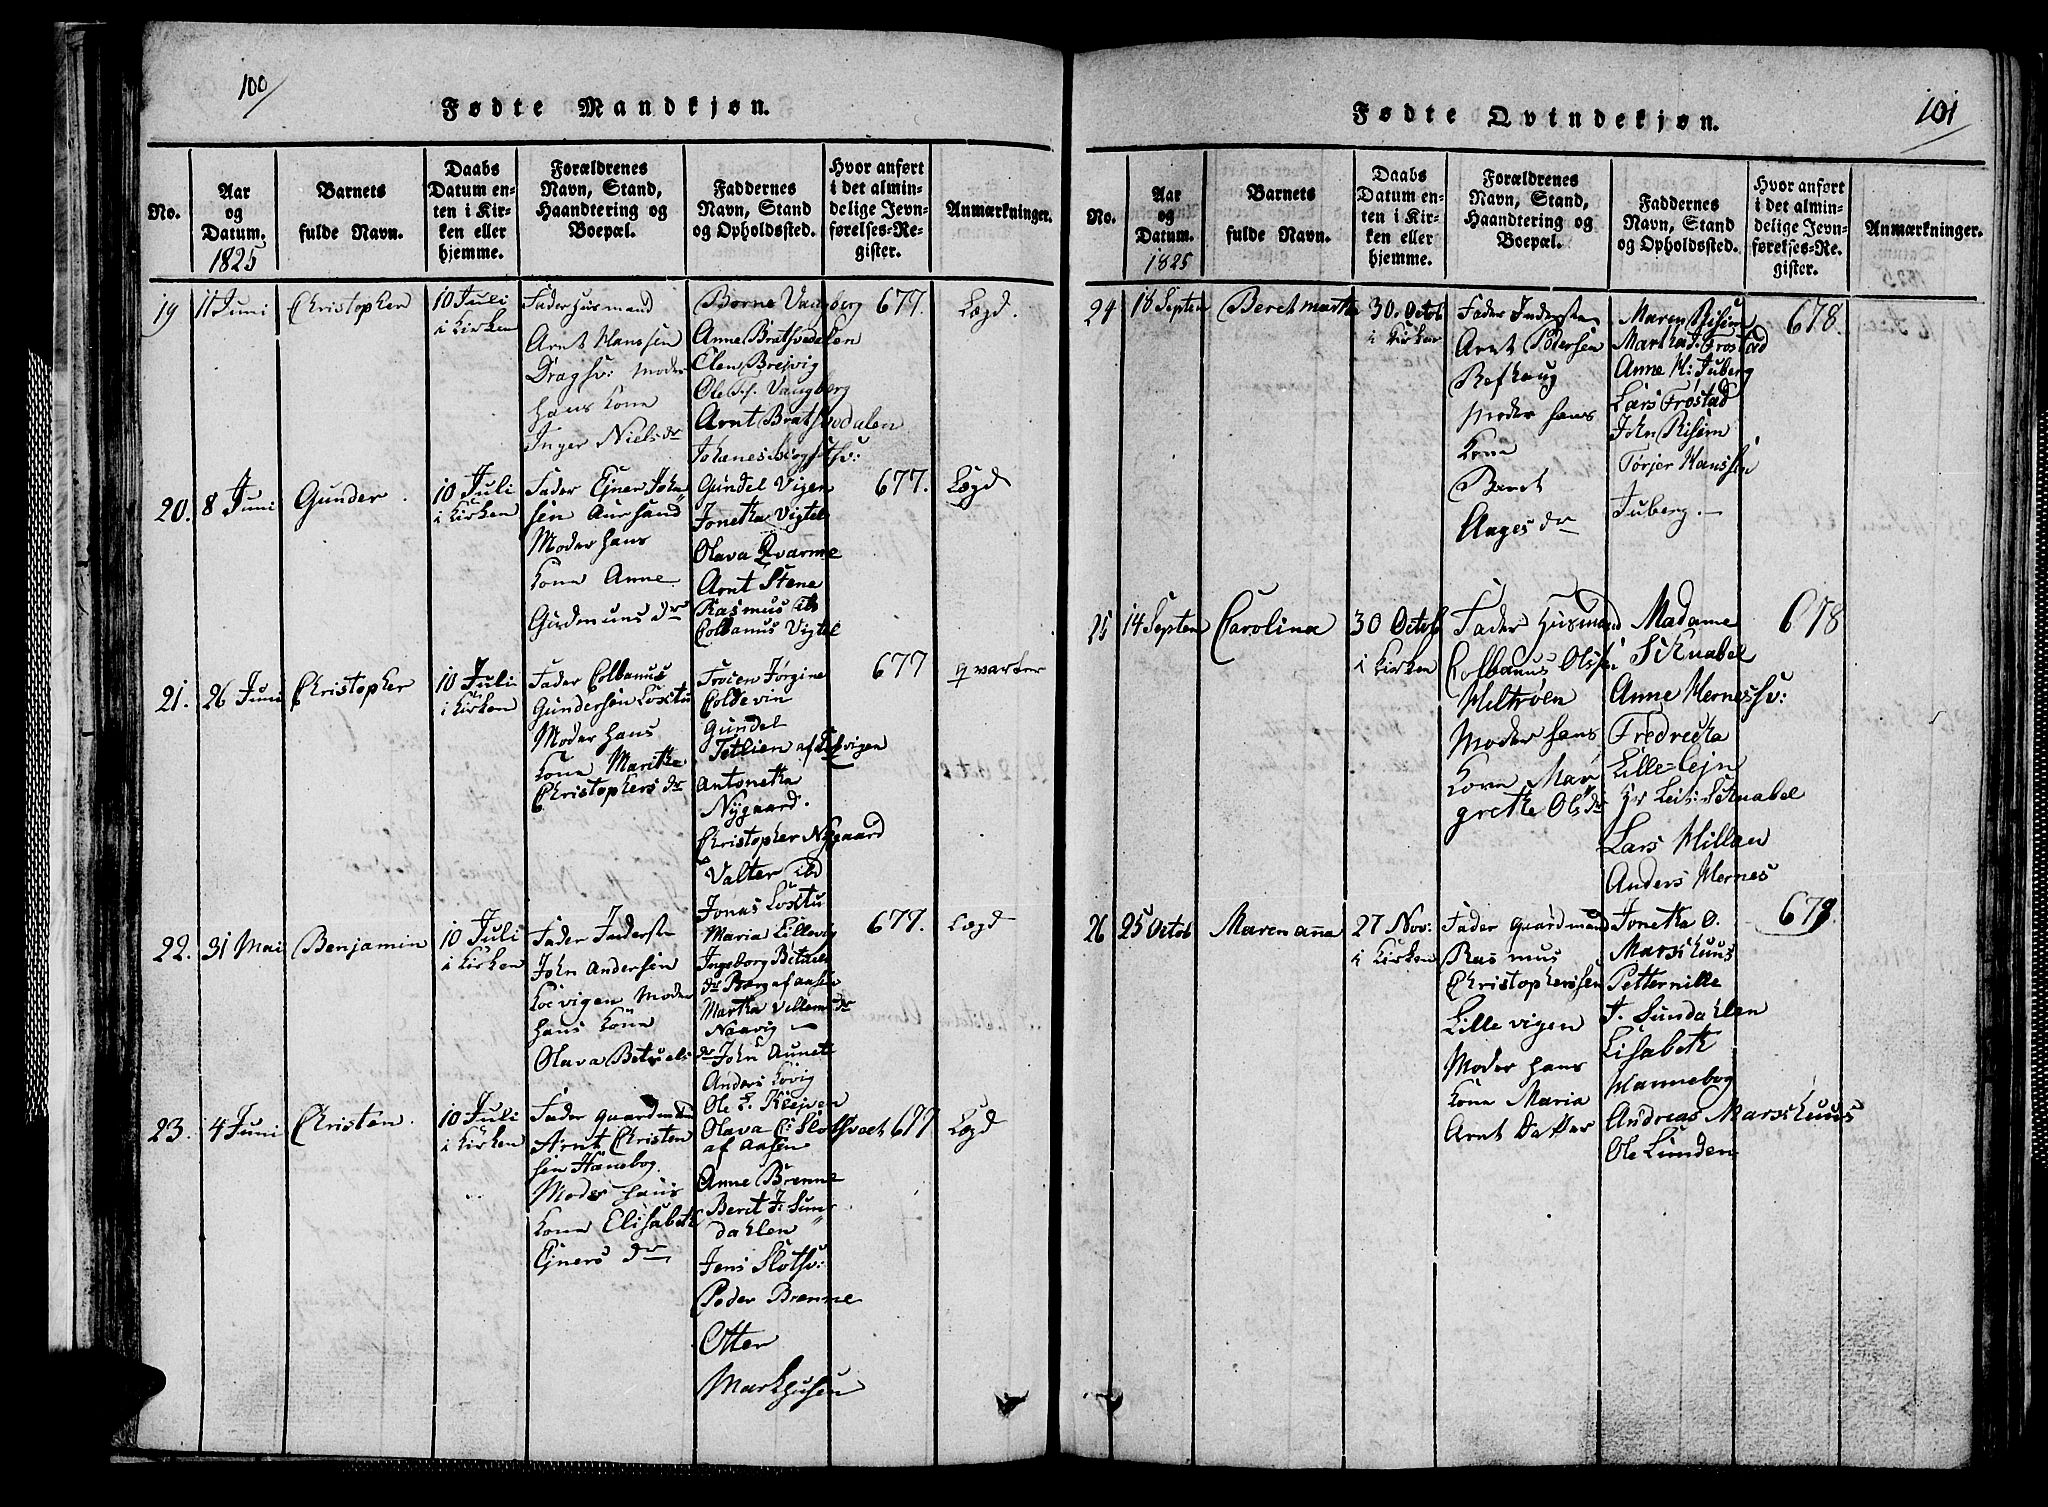 100
Fødte Mandkjøn.
No.
Aar
og
Datum.
1825
Barnets
fulde Navn.
Daabs
Datum en-
ten i Kir-
ken eller
hjemme.
Forældrenes
Navn, Stand,
Haandtering og
Boepæl.
Faddernes
Navn, Stand
og Opholdssted.
Hvor anført
i det almin-
delige Jevn-
førelses-Re-
gister.
Anmærkninger.
19
11 Juni
Christopher
10 Juli
i Kirken
Fader husmand
Arnt Hanssen
Dragsv: Moder
hans Kone
Inger Niels dr
Anne Bratsvedalen
Elen Brejvig
Arnt Bratsvedalen
677.
Lægd.
20.
8 Juni
Gunder
10 Juli
i Kirken
Fader Ejner John
sen Aursand
Moder hans
Kone Anne
Gudmuns dr
Gundel Vigen
Jonetha Vigtel
Olava Qvarme
Arnt Stene
Rasmus ib
Colbanus Vigtel
677.
Lægd
21.
26 Juni
Christopher
10 Juli
i Kirken
Fader Colbanus
Gundersen
Moder hans
Kone Marithe
Christophers dr
Frøien Jørgine
Coldevin
Gundel
Antonetha
Nygaard.
Christopher Nygaard
Valter ibd
Jonas
677
qvarter
22.
31 Mai
Benjamin
10 Juli
i Kirken
Fader Inderste
John Andersen
Moder
hans Kone
Olava Betuels
Maria Lillevig
Ingeborg Betuels
dr Berg af Aasen
Martha Villems dr
Naavig
dr John Aunet
Anders
Ole E. Klejven
677.
Lægd
23.
4 Juni
Christen.
10 Juli
i Kirken
Fader gaardmand
Arnt Christen
sen Hanebog.
Moder hans
Kone Elisabeth
Ejners dr
Olava C: Slotsvået
af Aasen
Anne Brenne
Berit J: Sun
dahlen
Jens Slotsv:
Peder Brenne
Otter
Markhusen
677
Lægd
101
Fødte Qvindekjøn.
No.
Aar
og
Datum.
1825
Barnets
fulde Navn.
Daabs
Datum en-
ten i Kir-
ken eller
hjemme.
Forældrenes
Navn, Stand,
Haandtering og
Boepæl.
Faddernes
Navn, Stand
og Opholdssted.
Hvor anført
i det almin-
delige Jevn-
førelses-Re-
gister.
Anmærkninger.
24
18 Septen
Beret martha
30. Octob
i Kirken
Fader Inderste
Arnt Pedersen
Refhaug
Moder hans
Kone
Beret
Aages dr
Maren Risem
Martha J. Frostad
Anne H: Juberg
Lars Frostad
John Risem
Torjer Hanssen
Juberg.
678.
25
14 Septen
Carolina
30 Octob
i Kirken
Fader Husmand
Colbanus Olssen
Moder hans
Kone Mar
grethe Ols dr
Madame
Schnabel
Anne Hernessv:
Fredrecka
Lille-Lejn
Hr Leit: Schnabel
Lars Millan
Anders Hernes
678
26
25 Octob
Maren anna
27 Nov:
i Kirken
Fader gaardmand
Rasmus
Christopherssen
Lillevigen
Moder hans
Kone Maria
Arnt Datter
Jonetha O.
Marschuus
Petternille
J. Sundahlen
Lisabeth
Hannebog
Andreas Marschuus
Ole Lunden
678.